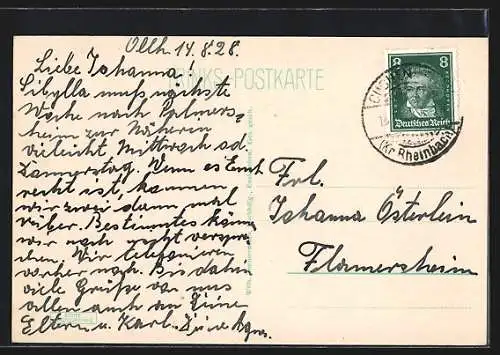 Ollh. 14.8.28.
Liebe Johanna!
Sibylla muß nächste
Woche nach Palmers-
heim zur Näherin
vieleicht Mittwoch od.
Donnerstag. Wenn es Euch
recht ist, kommen
wir zwei dann mal
rüber. Bestimmtes können
wir noch nicht verspre-
chen. Wir telefonieren
vorher noch. Bis dahin
viele Grüße von uns
allen auch an Deine
Eltern u. Karl. Deine Agnes.
POSTKARTE
8 8
Deutsches Reich
(Kr. Rheinbach)
Frl.
Johanna Österlein
Flamersheim